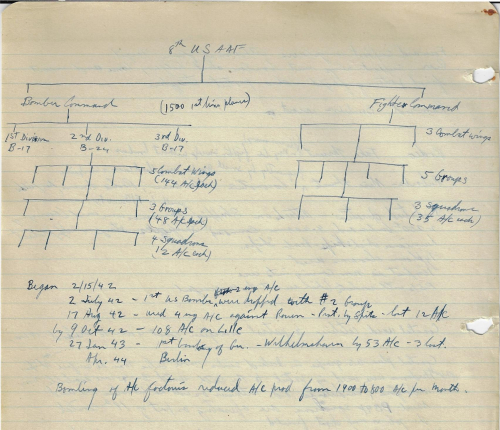 8th USAAF
Bomber Command (1500 1st line planes) Fighter Command
1st Division 2nd Div. 3rd Div. 3 Combat Wings
B-17 B-24 B-17
5 Combat Wings 5 Groups
(144 A/C each)
3 Groups 3 Squadrons
(48 A/C each) (35 A/C each)
4 Squadrons
(12 A/C each)
Began 2/15/42
2 July 42 - 1st US Bomber were with #2 Group
17 Aug 42 - used A/C against Rouen - by Spits - lost 12 A/C
by 9 Oct 42 - 108 A/C on Lille
27 Jan 43 - 1st of Ger. - Wilhelmshaven by 53 A/C - 3 lost.
Apr. 44 Berlin
Bombing of A/C factories reduced A/C prod from 1900 to 800 A/C per month.